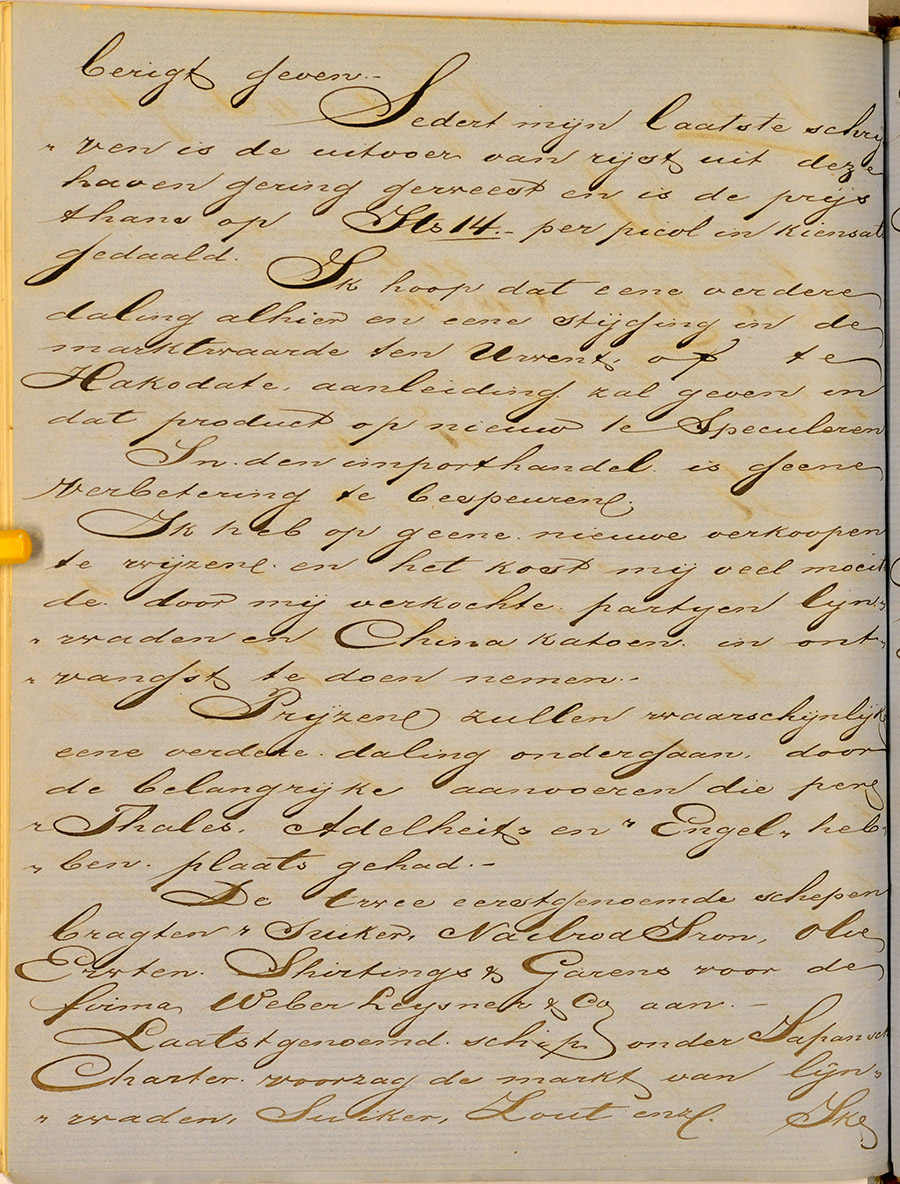 berigt geven.-
Sedert mijn laatste schrij
„ ven is de uitvoer van rijst uit deze
haven gering geweest en is de prijs
thans op Its 14.- per picol in Kiensats
gedaald.
Ik hoop dat eene verdere
daling alhier en eene stijging in de
marktwaarde ten Uwent, of te
Hakodate, aanleiding zal geven in
dat product op nieuw te Speculeren
In den importhandel is geene
verbetering te bespeuren.
Ik heb op geene nieuwe verkoopen
te wijzen en het kost mij veel moeite
de door mij verkochte partyen lijn„
„ waden en China katoen in ont„
„ vangst te doen nemen.-
Prijzen zullen waarschijnlijk
eene verdere daling ondergaan, door
de belangrijke aanvoeren die per
„ Thales, Adelheit„ en „ Engel„ heb„
„ ben plaats gehad.-
De twee eerstgenoemde schepen
bragten „ Suiker, Nailrod Iron, Olie
Erwten Shirtings & Garens voor de
firma Weber Leysner & Co aan.-
Laatstgenoemd schip onder Japansch
Charter voorzag de markt van lijn„
„ waden, Suiker, Zout enz. Ik